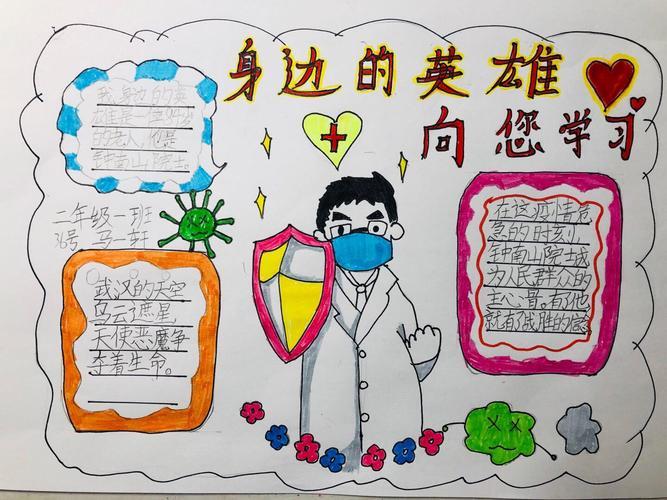 身边的英雄
向您学习
我身边的英
雄是一位84岁
的老人,他是
钟南山院士。
二年级一班
36号 马一轩
武汉的天空
乌云了遮星
天使恶魔争
夺着生命。
在这疫情危
急的时刻,
钟南山院士成
为人民群众的
主心骨。有了他
就有了战胜的